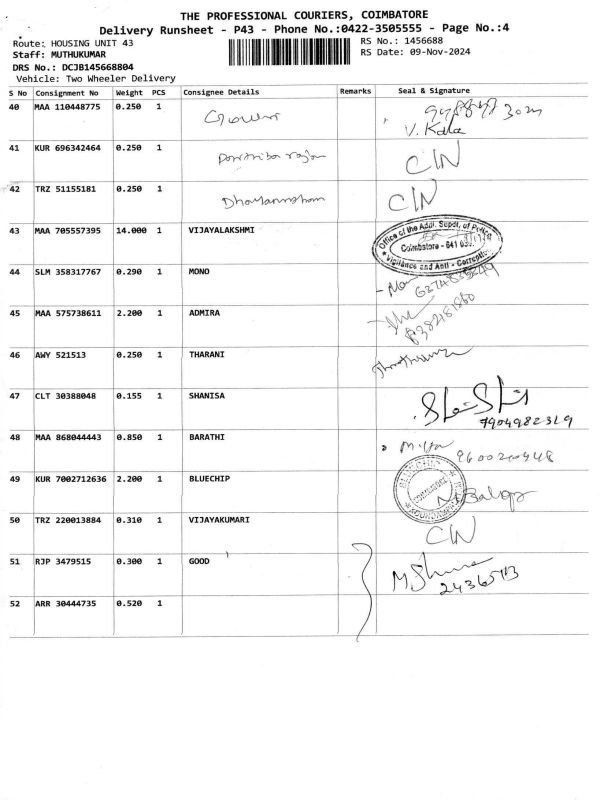 THE PROFESSIONAL COURIERS, COIMBATORE
Delivery Runsheet - P43 - Phone No.:0422-3505555 - Page No.:4
Route: HOUSING UNIT 43
RS No.: 1456688
Staff: MUTHUKUMAR
RS Date: 09-Nov-2024
DRS No.: DCJB145668804
Vehicle: Two Wheeler Delivery
S No Consignment No Weight PCS Consignee Details Remarks Seal & Signature
40 MAA 110448775 0.250 1
V. Kala
41 KUR 696342464 0.250 1 CIN
42 TRZ 51155181 0.250 1 CIN
43 MAA 705557395 14.000 1 VIJAYALAKSHMI
Office of the Addl. Supdt. of Police
Coimbatore - 641
Vigilance and Anti - Corruption
44 SLM 358317767 0.290 1 MONO
45 MAA 575738611 2.200 1 ADMIRA
46 AWY 521513 0.250 1 THARANI
47 CLT 30388048 0.155 1 SHANISA
7904982319
48 MAA 868044443 0.850 1 BARATHI
49 KUR 7002712636 2.200 1 BLUECHIP
BLUECHIP
50 TRZ 220013884 0.310 1 VIJAYAKUMARI CIN
51 RJP 3479515 0.300 1 GOOD
52 ARR 30444735 0.520 1